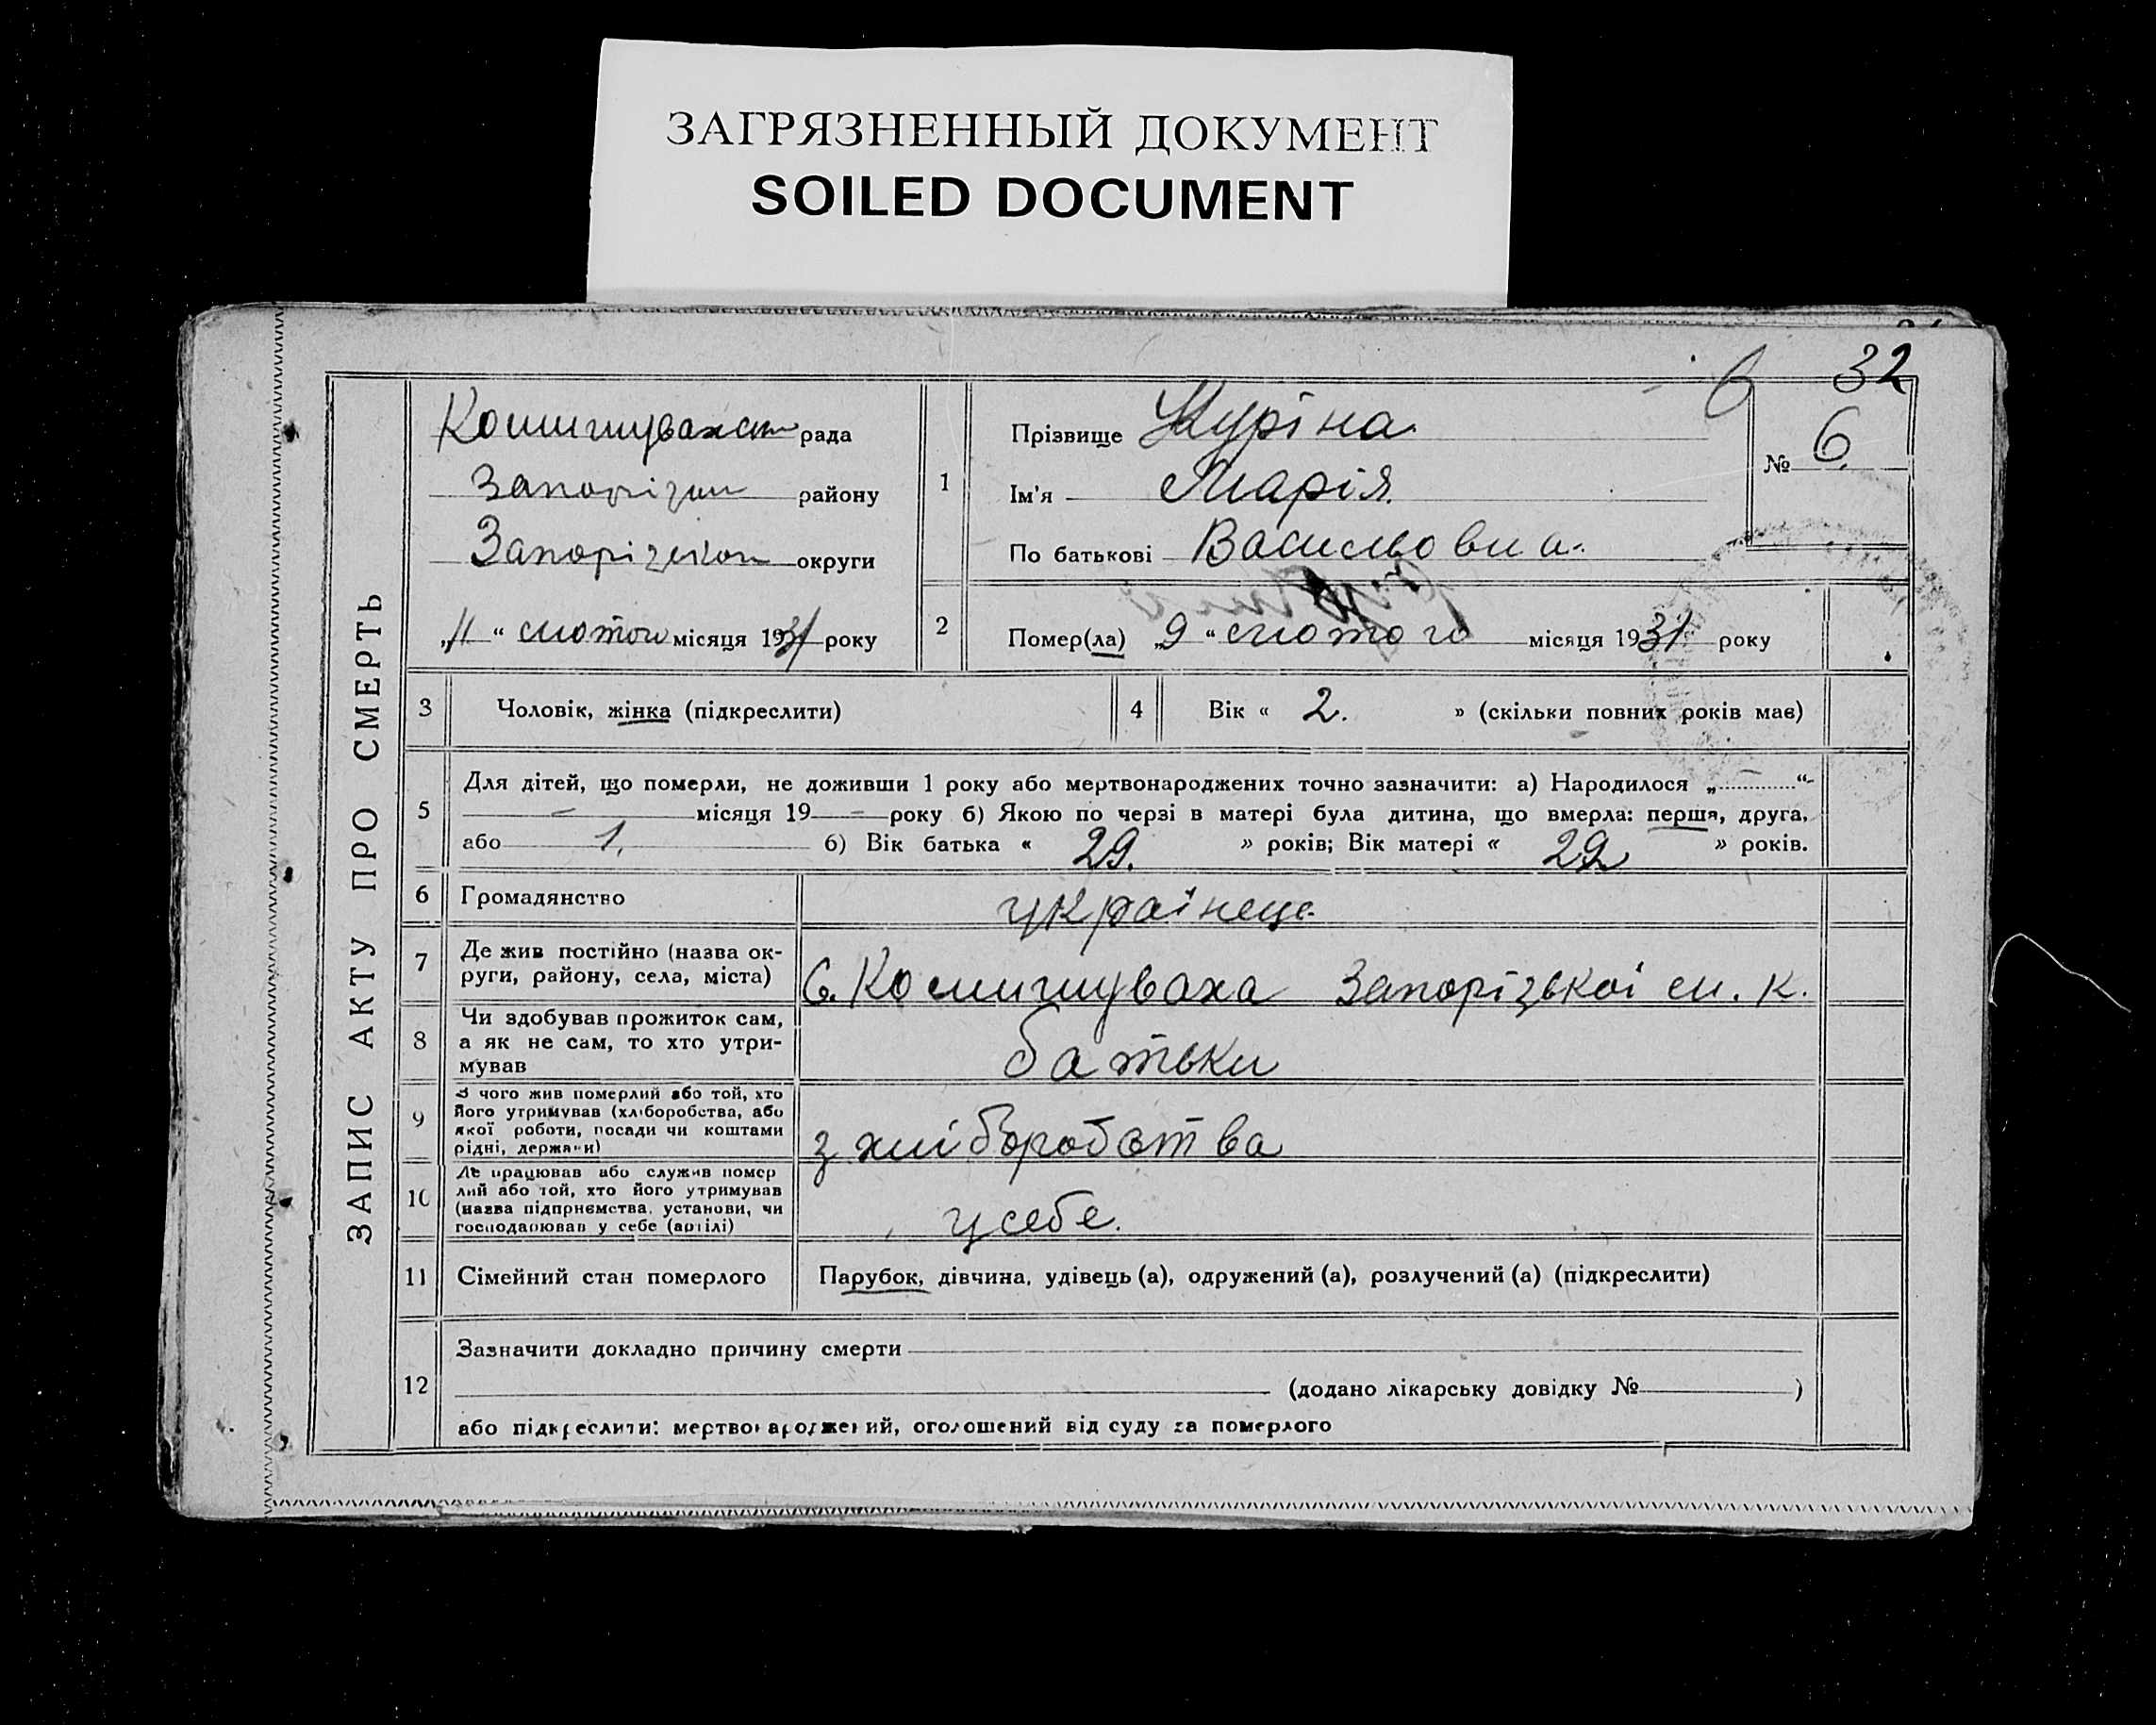 ЗАГРЯЗНЕННЫЙ ДОКУМЕНТ
SOILED DOCUMENT
32
6
ЗАПИС АКТУ ПРО СМЕРТЬ
Комишуваськ рада
Запорізьк району
Запорізької округи
„11“ лютого місяця 1931 року
1
Прізвище Журіна
Ім'я Марія
По батькові Васильовна
№ 6
2
Помер(ла) „9“ лютого місяця 1931 року
3
Чоловік, жінка (підкреслити)
4
Вік « 2. » (скільки повних років має)
5
Для дітей, що померли, не доживши 1 року або мертвонароджених точно зазначити: а) Народилося „ — “
— місяця 19 — року б) Якою по черзі в матері була дитина, що вмерла: перша, друга,
або 1. б) Вік батька « 29. » років; Вік матері « 29 » років.
6
Громадянство
українець
7
Де жив постійно (назва ок-
руги, району, села, міста)
С. Комишуваха Запорізької м. к.
8
Чи здобував прожиток сам,
а як не сам, то хто утри-
мував
батьки
9
З чого жив померлий або той, хто
його утримував (хліборобства, або
якої роботи, посади чи коштами
рідні, держави)
з хліборобства
10
Де працював або служив помер
лий або той, хто його утримував
(назва підприємства, установи, чи
господарював у себе (артілі)
у себе.
11
Сімейний стан померлого
Парубок, дівчина, удівець (а), одружений (а), розлучений (а) (підкреслити)
12
Зазначити докладно причину смерти
(додано лікарську довідку № )
або підкреслити: мертвонароджений, оголошений від суду за померлого